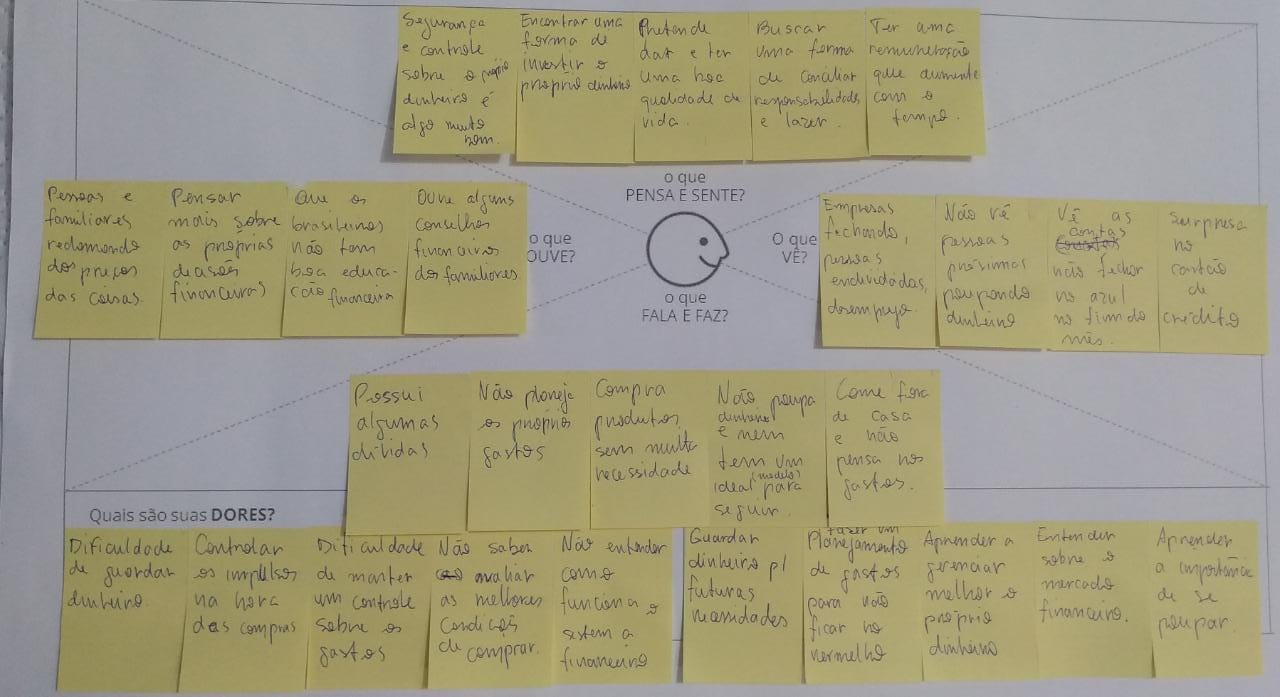 Segurança
e controle
sobre o próprio
dinheiro é
algo muito
bom.
Encontrar uma
forma de
investir o
próprio dinheiro
Pretende
dar e ter
uma boa
qualidade de
vida.
Buscar
uma forma
de conciliar
responsabilidades
e lazer.
Ter uma
remuneração
que aumente
com o
tempo.
o que
PENSA E SENTE?
Pessoas e
familiares
reclamando
dos preços
das coisas.
Pensar
mais sobre
as próprias
decisões
financeiras
Que os
brasileiros
não tem
boa educa-
ção financeira
Ouve alguns
conselhos
financeiros
dos familiares.
o que
OUVE?
O que
VÊ?
Empresas
fechando,
pessoas
endividadas,
desemprego.
Não vê
pessoas
próximas
poupando
dinheiro
Vê as
contas
não fechar
no azul
no fim do
mês.
Surpresa
no
cartão
de
crédito
o que
FALA E FAZ?
Possui
algumas
dívidas
Não planeja
os próprios
gastos
Compra
produtos
sem muita
necessidade
Não poupa
dinheiro
e nem
tem um
ideal (modelo) para
seguir.
Come fora
de casa
e não
pensa nos
gastos.
Quais são suas DORES?
Dificuldade
de guardar
dinheiro.
Controlar
os impulsos
na hora
das compras
Dificuldade
de manter
um controle
sobre os
gastos
Não saber
avaliar
as melhores
condições
de comprar.
Não entender
como
funciona o
sistema
financeiro
Guardar
dinheiro p/
futuras
necessidades
fazer um
Planejamento
de gastos
para não
ficar no
vermelho
Aprender a
gerenciar
melhor o
próprio
dinheiro
Entender
sobre o
mercado
financeiro.
Aprender
a importância
de se
poupar.